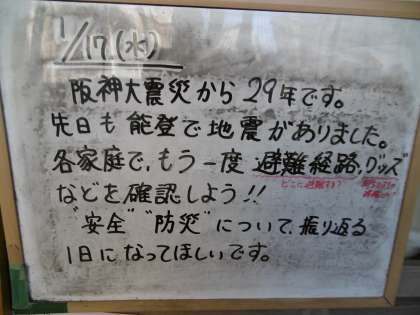 1/17(水)
阪神大震災から29年です。
先日も能登で地震がありました。
各家庭で、もう一度 避難経路,グッズ
どこに避難する?
などを確認しよう!!
"安全" "防災" について、振り返る
1日になってほしいです。